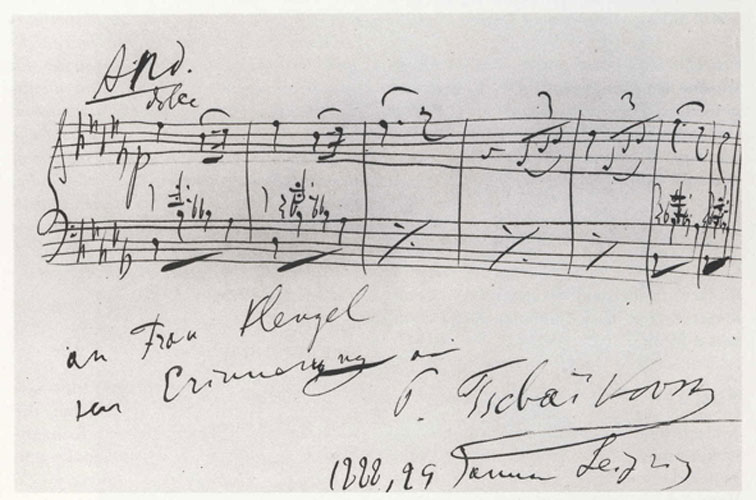 And.
dolce
p
3 3
an Frau Klengel
zur Erinnerung an
P. Tschaïkovsky
1888, 29 Januar Leipzig